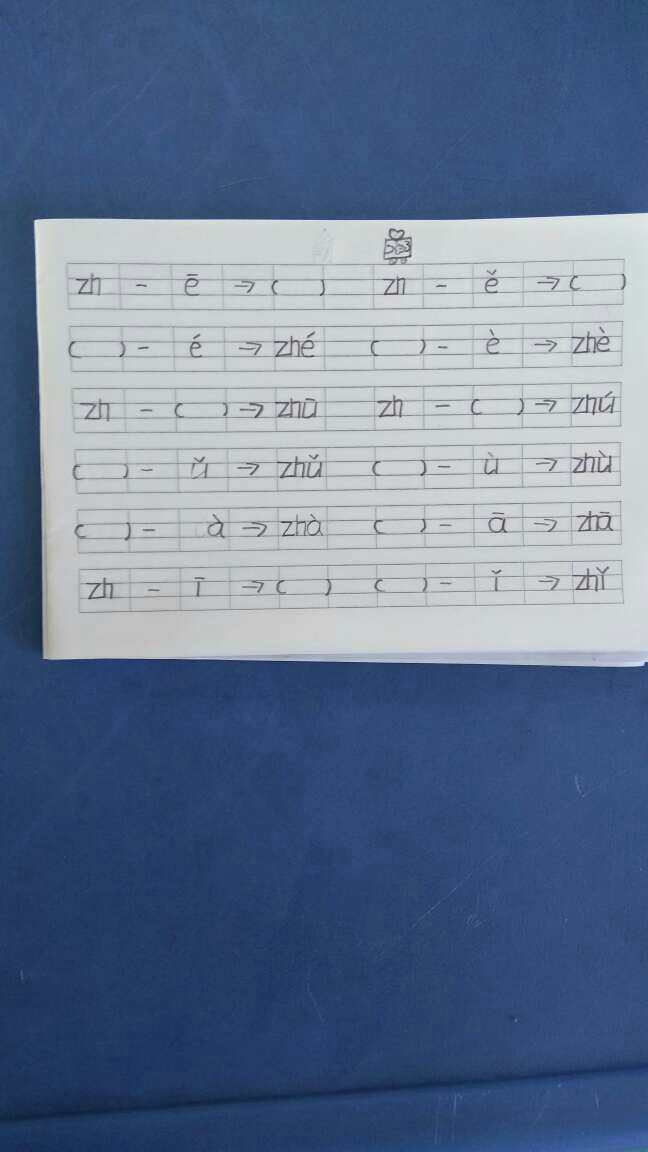 zh - ē → (  )  zh - ě → (  )
(  ) - é → zhé  (  ) - è → zhè
zh - (  ) → zhū  zh - (  ) → zhú
(  ) - ǔ → zhǔ  (  ) - ù → zhù
(  ) - à → zhà  (  ) - ā → zhā
zh - ī → (  )  (  ) - ǐ → zhǐ